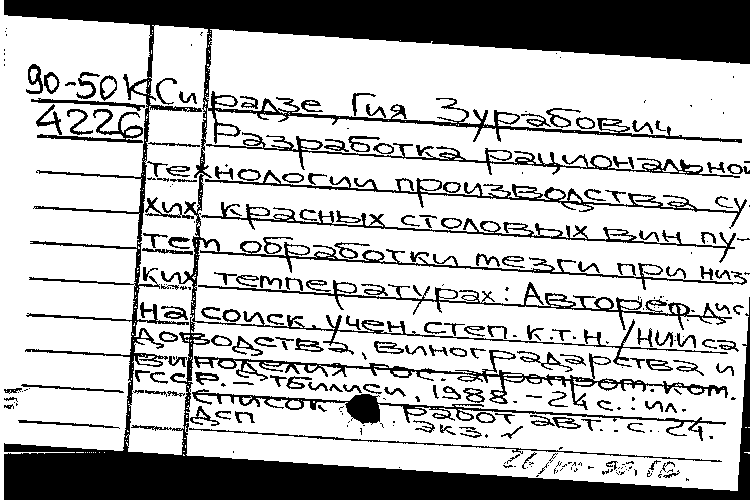 90-50К Сирадзе, Гия Зурабович
4226 Разработка рациональной
технологии производства су-
хих красных столовых вин пу-
тем обработки мезги при низ
ких температурах: Автореф. дис.
на соиск. учен. степ. к.т.н. / НИИ са-
доводства, виноградарства и
виноделия Гос. агропром. ком.
ГССР. – Тбилиси, 1988. – 24 с.: ил.
Список работ авт.: с. 24.
ДСП экз.